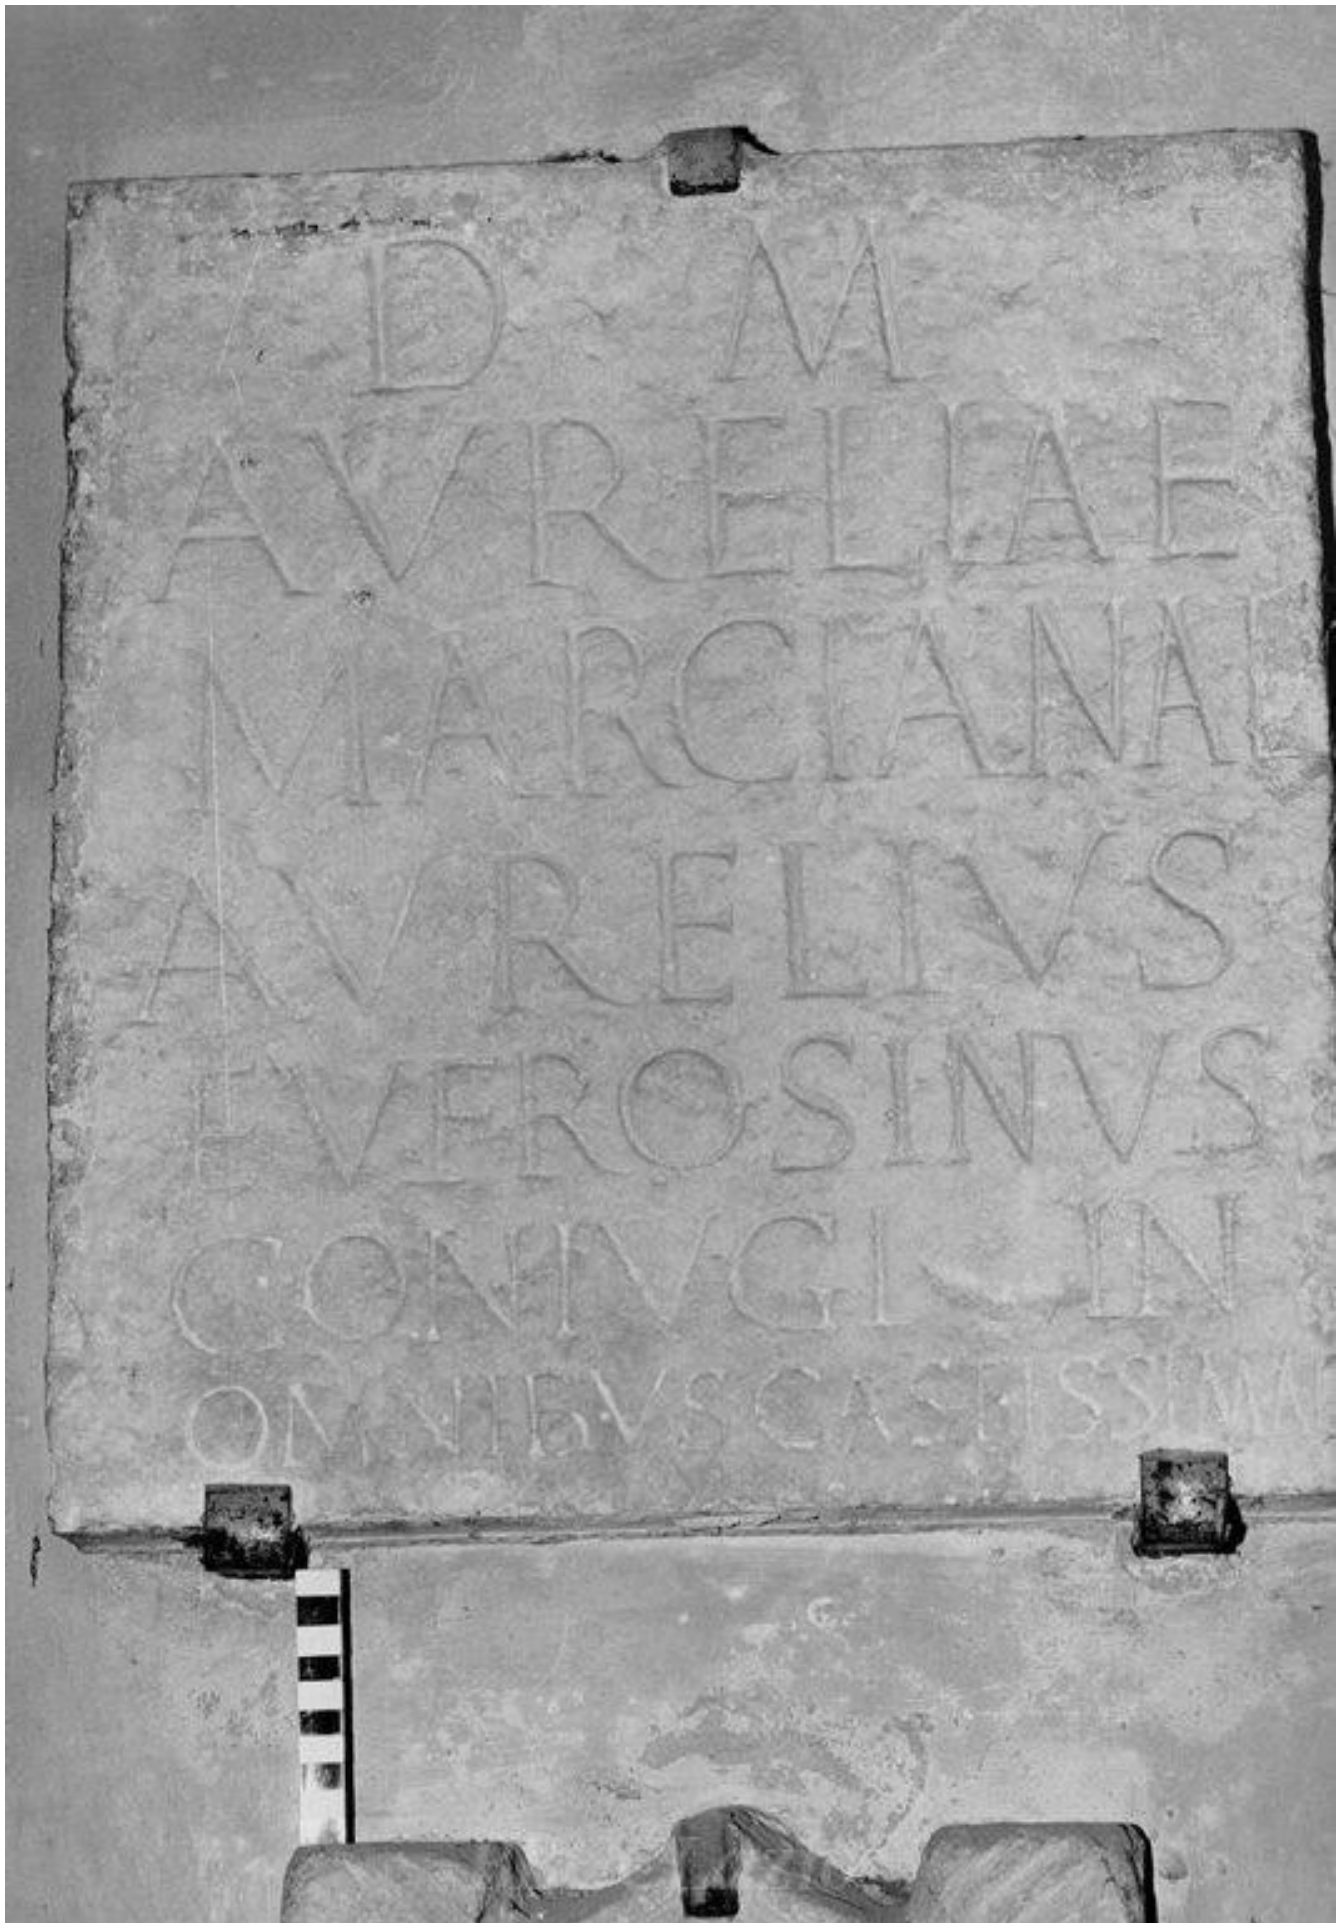 D M
AVRELIAE
MARCIANAE
AVRELIVS
EVFROSINVS
CONIVGI IN
OMNIBVS CASTISSIMAE